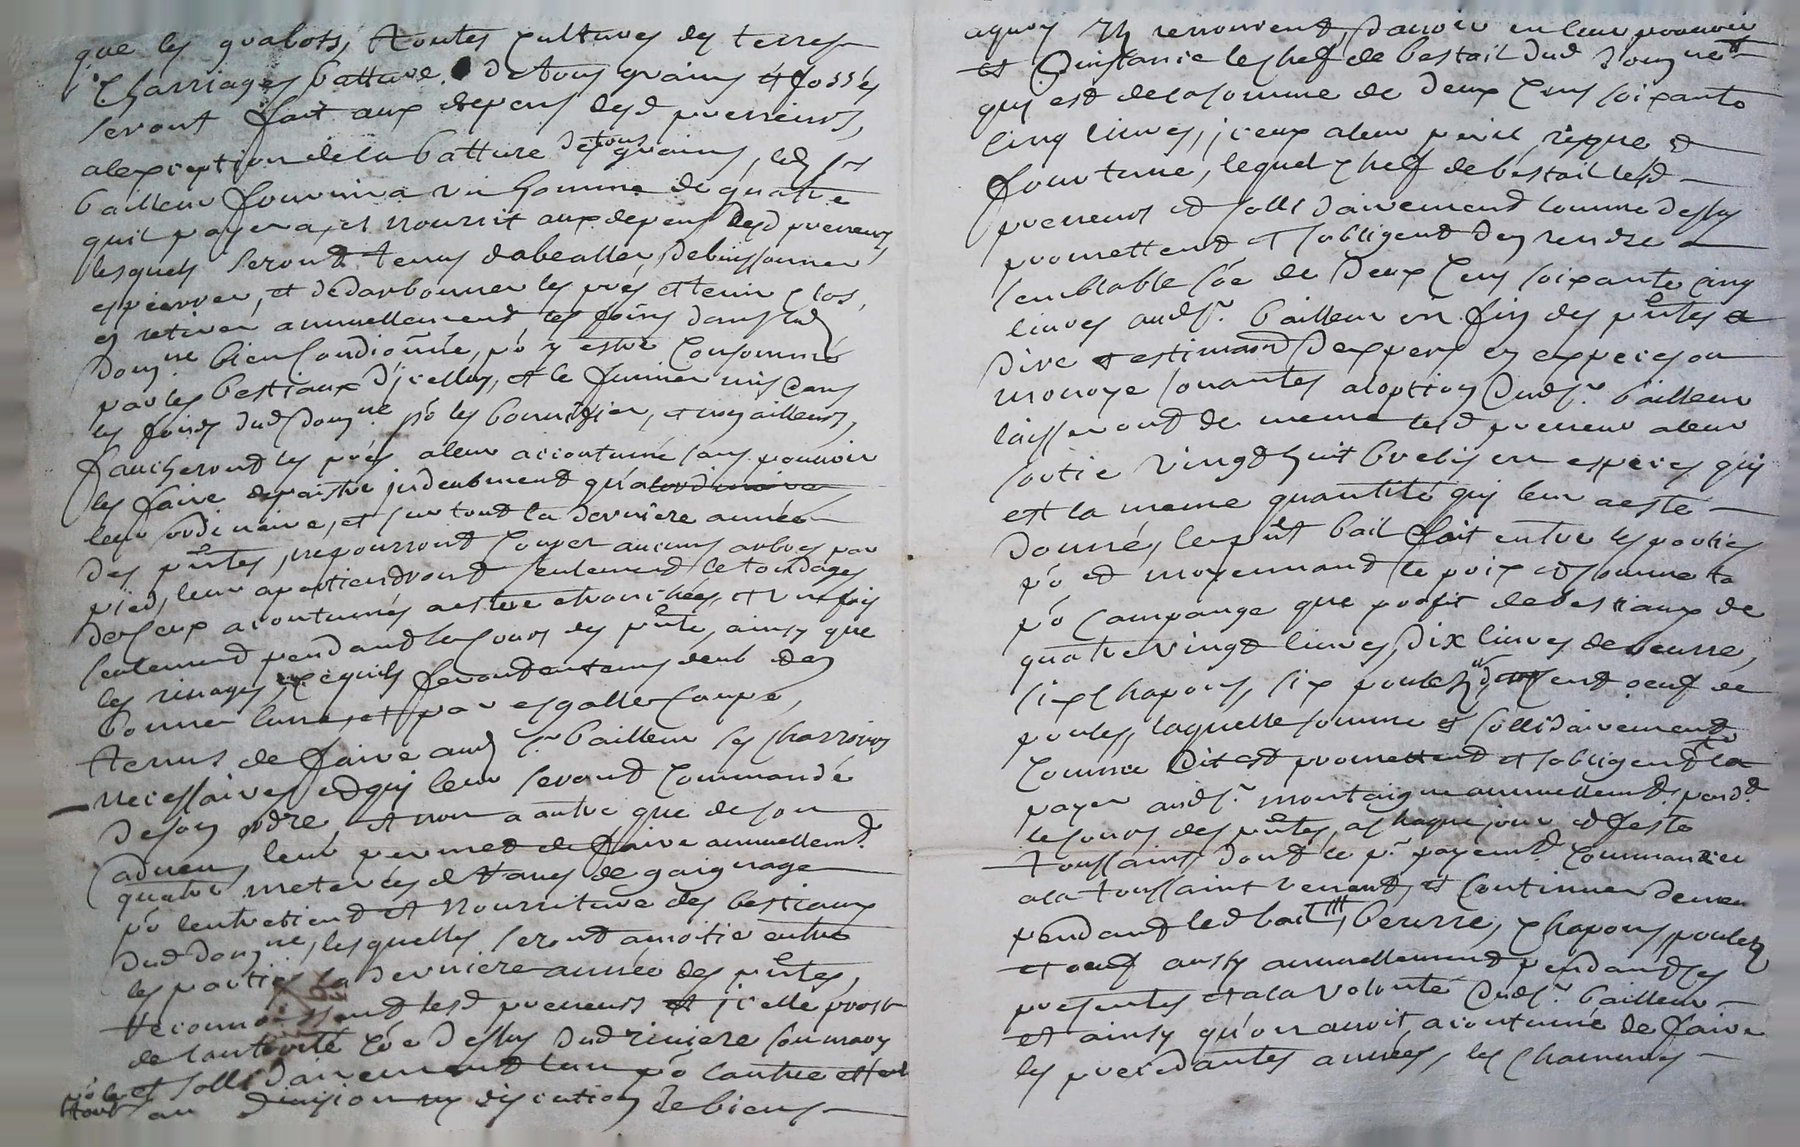 que les quabots, toutes cultures des terres
Charriages batture de tous grains et fossés
seront fait aux depens desd preneurs,
alexception dela batture de tous grains, led sr
bailleur fournira un homme de quatre
quil payera, et nourrit aux depens desd preneurs
lesquels seront tenus dabealler, debuissonner
espierrer, et dedarbonner les prés et tenir clos,
en retirer annuellement les foins dans led
domne bien condionnée, po y estre consommé
par les bestiaux dicelluy, et le fumier mis dans
les fonds dud domne po les bonniffier, et non ailleurs,
faucheront les prés aleur accoutumé sans pouvoir
les faire depaistre indeubment qua lordinaire
leur ordinaire, et sur tout la derniere année
des pntes, ne pourront couper aucuns arbres par
pied, leur apartiendront seulement le tondages
de ceux acoutumés aestre etronchées, et une fois
seulement pendant le cours des pnte, ainsy que
les vinages, ce quils feront en tems deub de
bonne lune, et par esgalle coupe,
tenus de faire aud sr bailleur les charrois
necessaires et qui leur seront commandé
de son ordre et non a autre que de son
adveu, leur permet de faire annuellemt
quatre meterées d'étang de gaignage
po lentretient et nourriture des bestiaux
dud domne, lesquelles seront amoitié entre
les parties la derniere année des pntes,
reconnoissent lesd preneurs et icelle prost
de lautorité coe dessus dud riviere son mary
et sollidairement lun po lautre et seul
po le tout sans division ny discution de biens
aquoy ils renoncent, davoir en leur pouvoir
et puissance le chef de bestail dud domne
qui est de la somme de deux cens soixante
cinq livres, iceux aleur peril, risque et
fourtune, lequel chef de bestail lesd
preneurs et sollidairement comme dessus
promettent et sobligent den rendre
semblable soe de deux cens soixante cinq
livres audsr bailleur en fin des pntes a
dire et estimaon dexpers en especes ou
monoye sonantes aloption dudsr bailleur
laisseront de meme lesd preneur aleur
sortie vingt huit brebis en especes qui
est la meme quantité qui leur aesté
donné, le pnt bail fait entre les parties
po et moyennant le prix et somme ta
po campange que profit de bestiaux de
quatre vingt livres, dix livres de beurre,
six chapons, six poulets, et cent oeuf de
poules, laquelle somme et sollidairement
comme dit est promettent et sobligent la
payer audsr montaigne annuellemt pendt
le cours des pntes, achaque jour et feste
toussaint dont le pr payemt commancer
ala toussaint venant, et continuer de meme
pendant led bail, beurre, chapons, poulets
et oeuf aussy annuellement pendant les
presentes et ala volonté dudsr bailleur
et ainsy qu'on avoit acoutumé de faire
les precedantes années, les chanvres